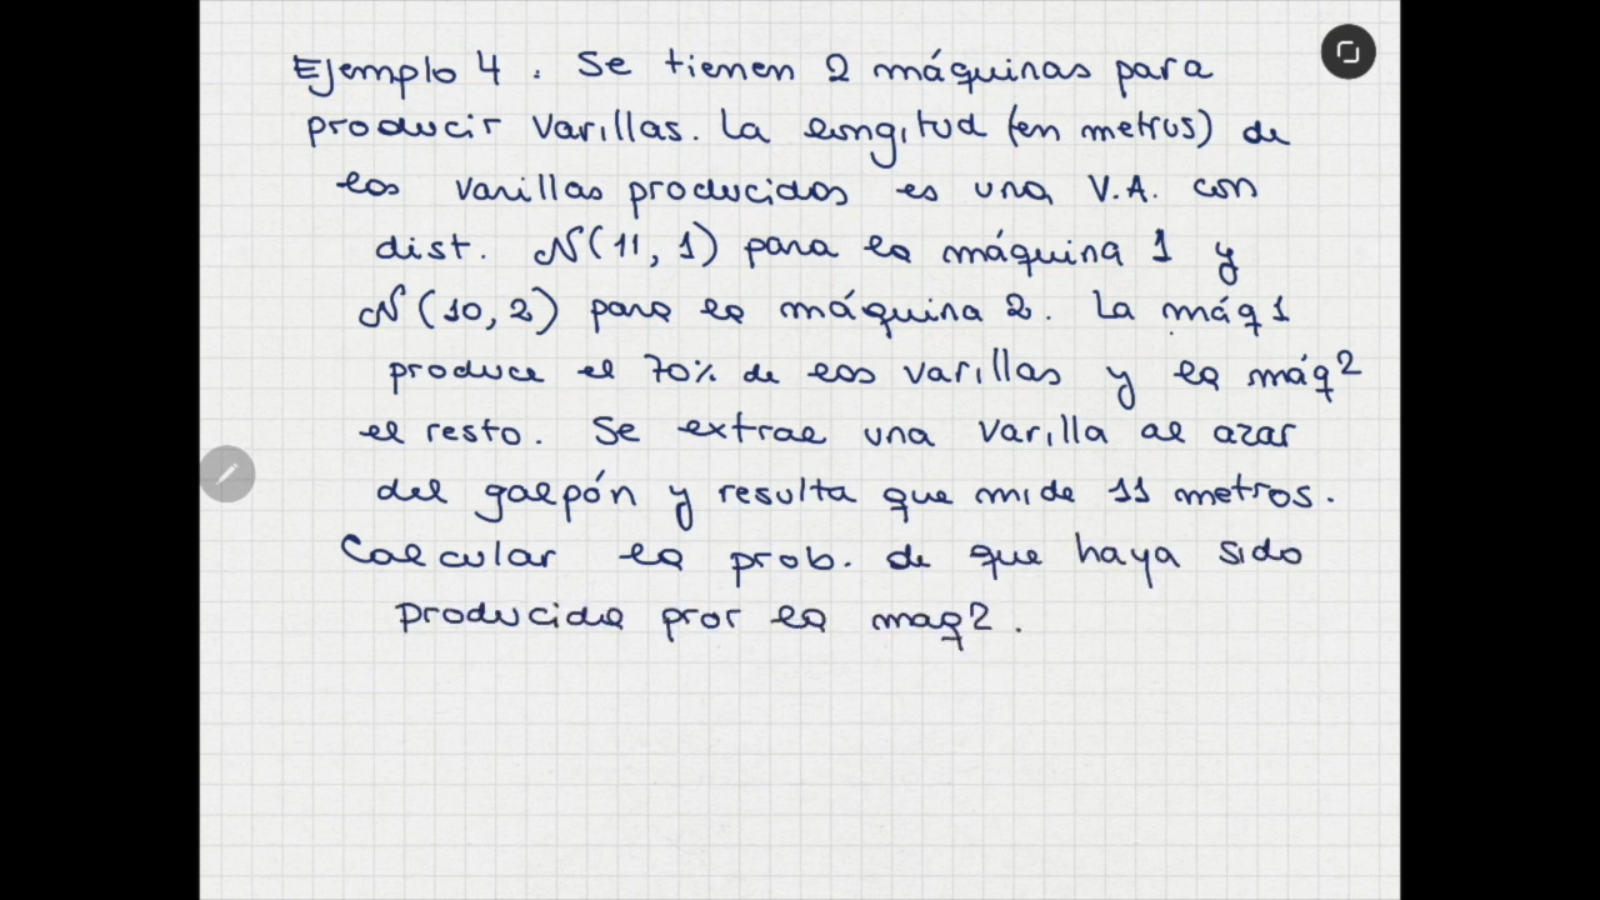 Ejemplo 4. Se tienen 2 máquinas para
producir varillas. La longitud (en metros) de
las varillas producidas es una V.A. con
dist. N(11, 1) para la máquina 1 y
N(10, 2) para la máquina 2. La máq 1
produce el 70% de las varillas y la máq 2
el resto. Se extrae una varilla al azar
del galpón y resulta que mide 11 metros.
Calcular la prob. de que haya sido
producida pror la maq 2.